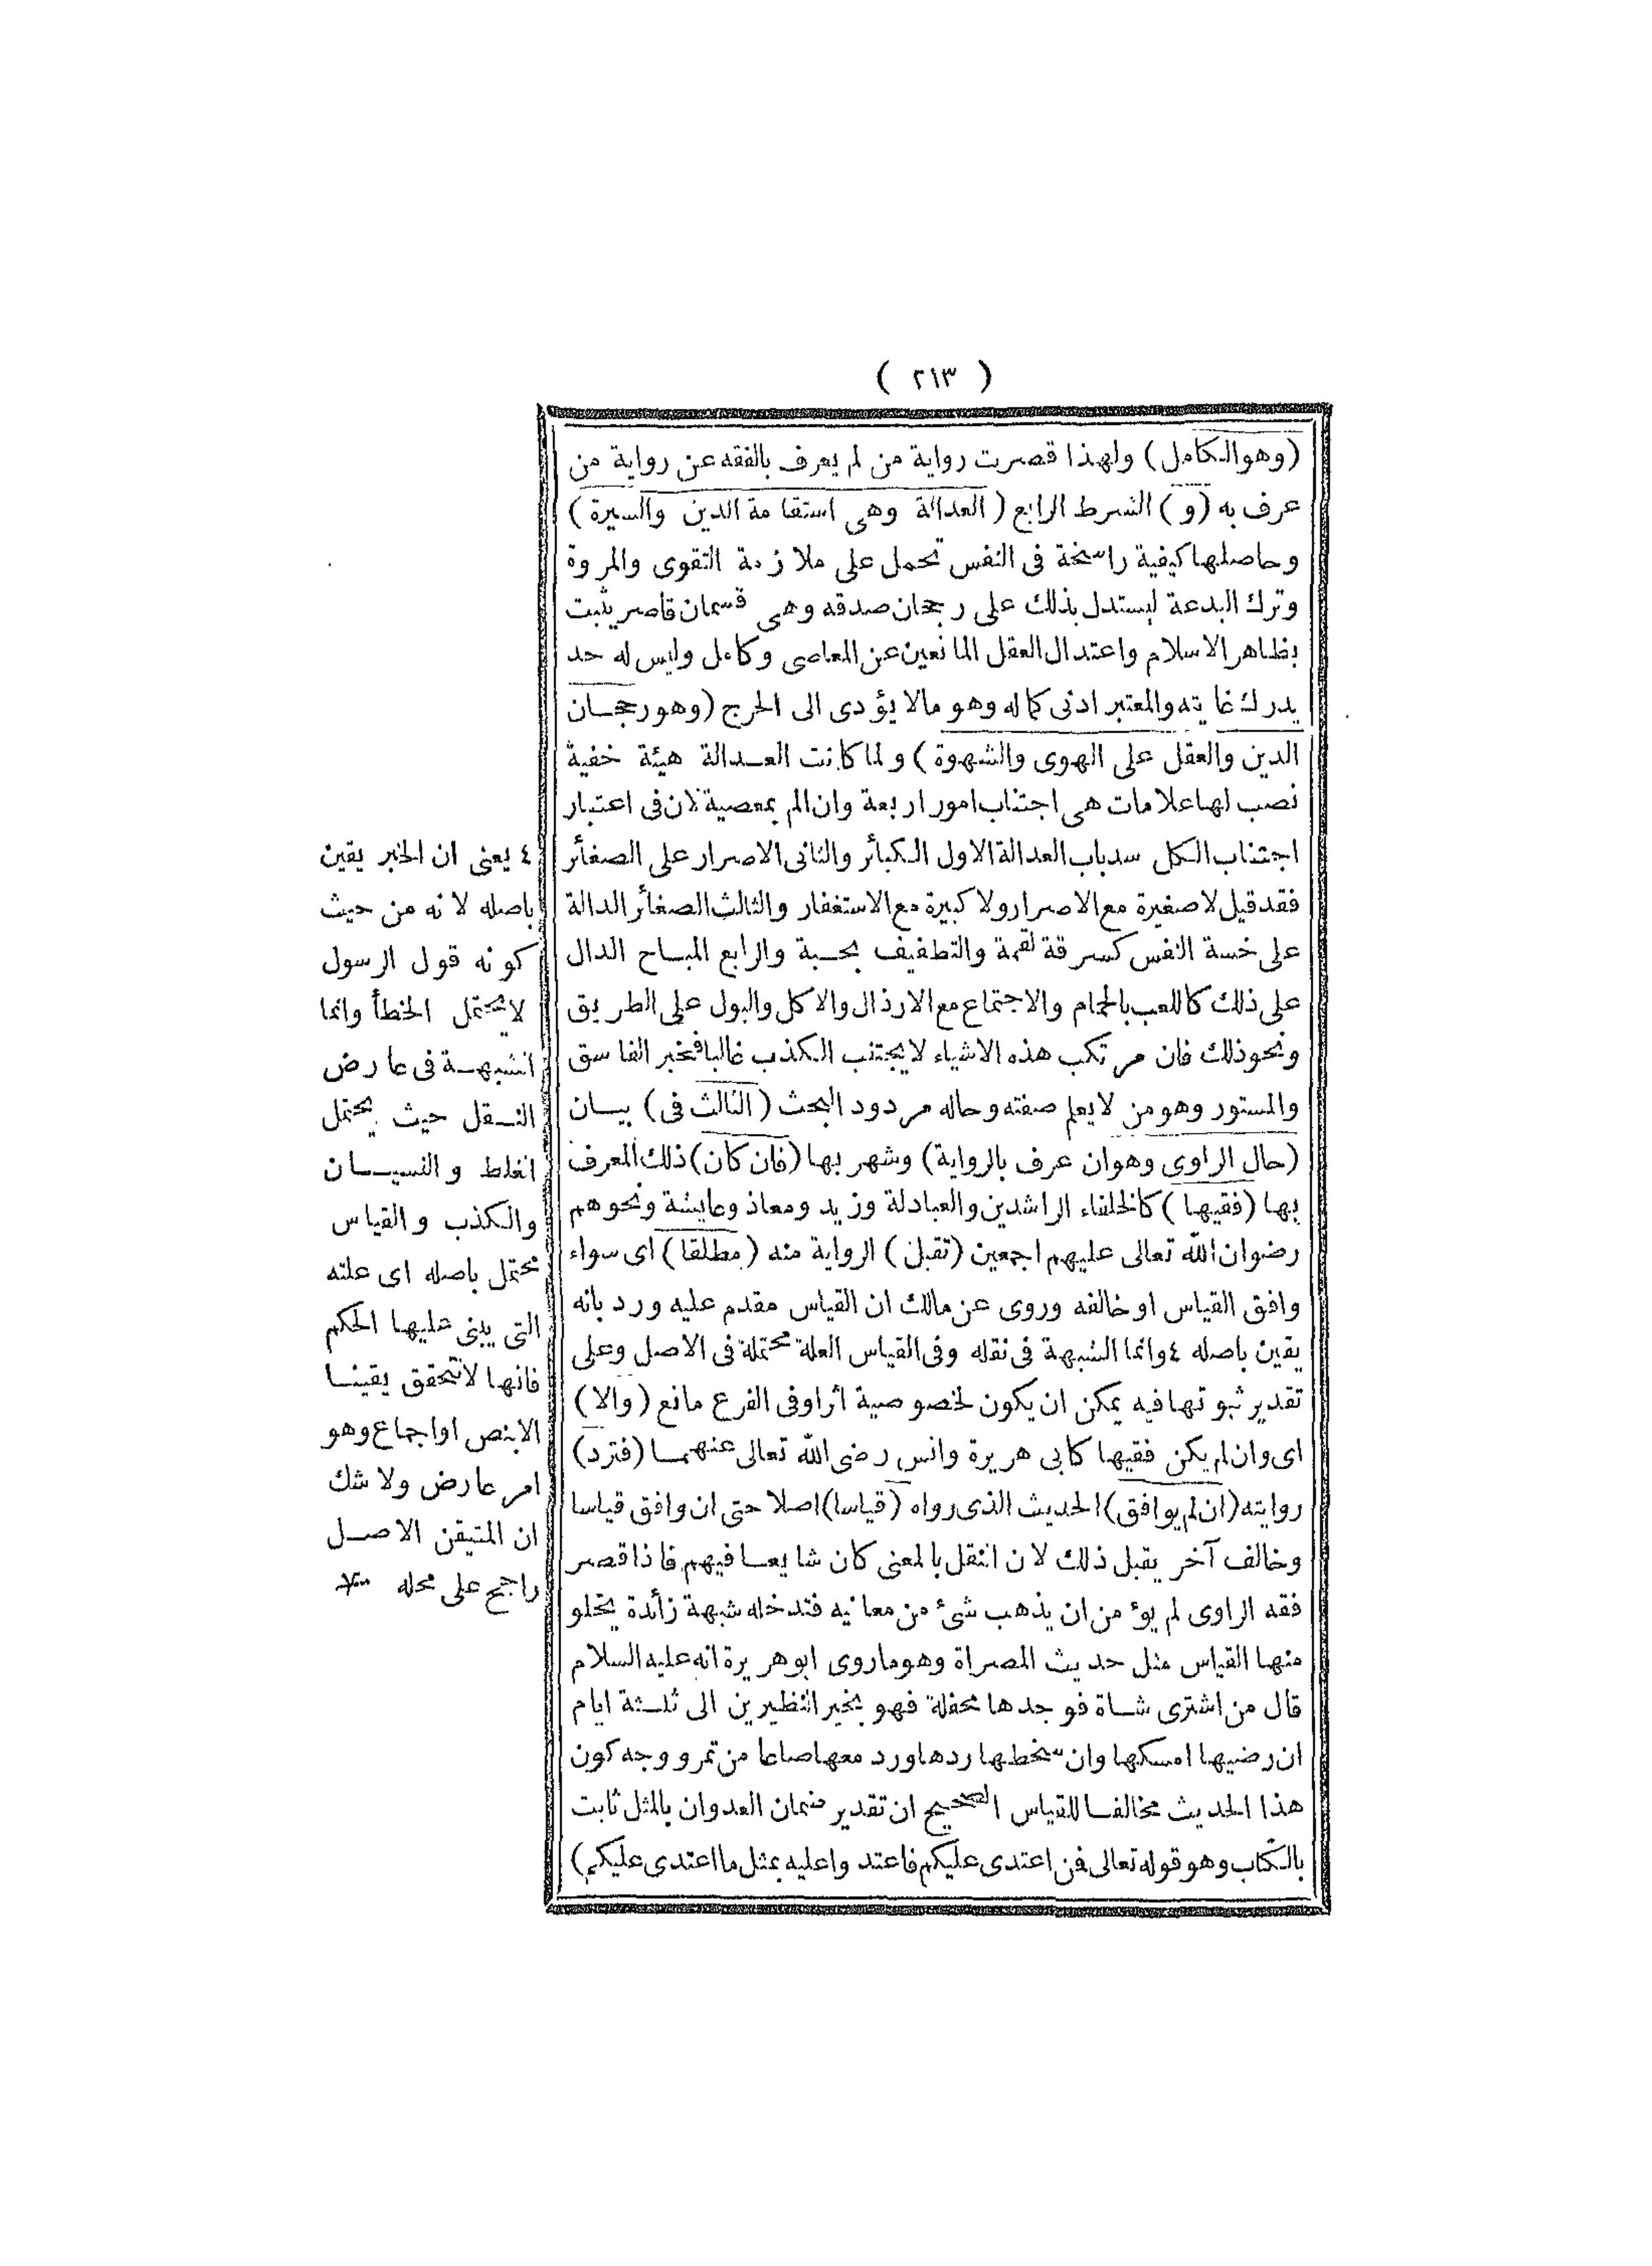 ( ٢١٣ )
(وهو الكامل) ولهذا قصرت رواية من لم يعرف بالفقه عن رواية من
عرف به (و) الشرط الرابع (العدالة وهى استقامة الدين والسيرة)
وحاصلها كيفية راسخة فى النفس تحمل على ملازمة التقوى والمروة
وترك البدعة ليستدل بذلك على رجحان صدقه وهى قسمان قاصر يثبت
بظاهر الاسلام واعتدال العقل المانعين عن المعاصى وكامل وليس له حد
يدرك غايته والمعتبر ادنى كماله وهو مالا يؤدى الى الحرج (وهو رجحان
الدين والعقل على الهوى والشهوة) ولما كانت العدالة هيئة خفية
نصب لها علامات هى اجتناب امور اربعة وان الم بمعصية لان فى اعتبار
اجتناب الكل سد باب العدالة الاول الكبائر والثانى الاصرار على الصغائر
فقد قيل لا صغيرة مع الاصرار ولا كبيرة مع الاستغفار والثالث الصغائر الدالة
على خسة النفس كسرقة لقمة والتطفيف بحبة والرابع المباح الدال
على ذلك كاللعب بالحمام والاجتماع مع الارذال والاكل والبول على الطريق
ونحو ذلك فان مرتكب هذه الاشياء لا يجتنب الكذب غالبا فخبر الفاسق
والمستور وهو من لا يعلم صفته وحاله مردود البحث (الثالث فى) بيان
(حال الراوى وهو ان عرف بالرواية) وشهر بها (فان كان) ذلك المعرف
بها (فقيها) كالخلفاء الراشدين والعبادلة وزيد ومعاذ وعايشة ونحوهم
رضوان الله تعالى عليهم اجمعين (تقبل) الرواية منه (مطلقا) اى سواء
وافق القياس او خالفه وروى عن مالك ان القياس مقدم عليه ورد بانه
يقين باصله ٤ وانما الشبهة فى نقله وفى القياس العلة محتملة فى الاصل وعلى
تقدير ثبوتها فيه يمكن ان يكون لخصوصية اثر او فى الفرع مانع (والا)
اى وان لم يكن فقيها كابى هريرة وانس رضى الله تعالى عنهما (فترد)
روايته (ان لم يوافق) الحديث الذى رواه (قياسا) اصلا حتى ان وافق قياسا
وخالف آخر يقبل ذلك لان النقل بالمعنى كان شايعا فيهم فاذا قصر
فقه الراوى لم يؤمن ان يذهب شئ من معانيه فتدخله شبهة زائدة يخلو
منها القياس مثل حديث المصراة وهو ماروى ابو هريرة انه عليه السلام
قال من اشترى شاة فوجدها محفلة فهو بخير النظيرين الى ثلثة ايام
ان رضيها امسكها وان سخطها ردها ورد معها صاعا من تمر ووجه كون
هذا الحديث مخالفا للقياس الصحيح ان تقدير ضمان العدوان بالمثل ثابت
بالكتاب وهو قوله تعالى فمن اعتدى عليكم فاعتدوا عليه بمثل ما اعتدى عليكم)
٤ يعنى ان الخبر يقين
باصله لانه من حيث
كونه قول الرسول
لا يحتمل الخطأ وانما
الشبهة فى عارض
النقل حيث يحتمل
الغلط والنسيان
والكذب والقياس
محتمل باصله اى علته
التى يبنى عليها الحكم
فانها لا تتحقق يقينا
الا بنص او اجماع وهو
امر عارض ولا شك
ان المتيقن الاصل
راجح على محله